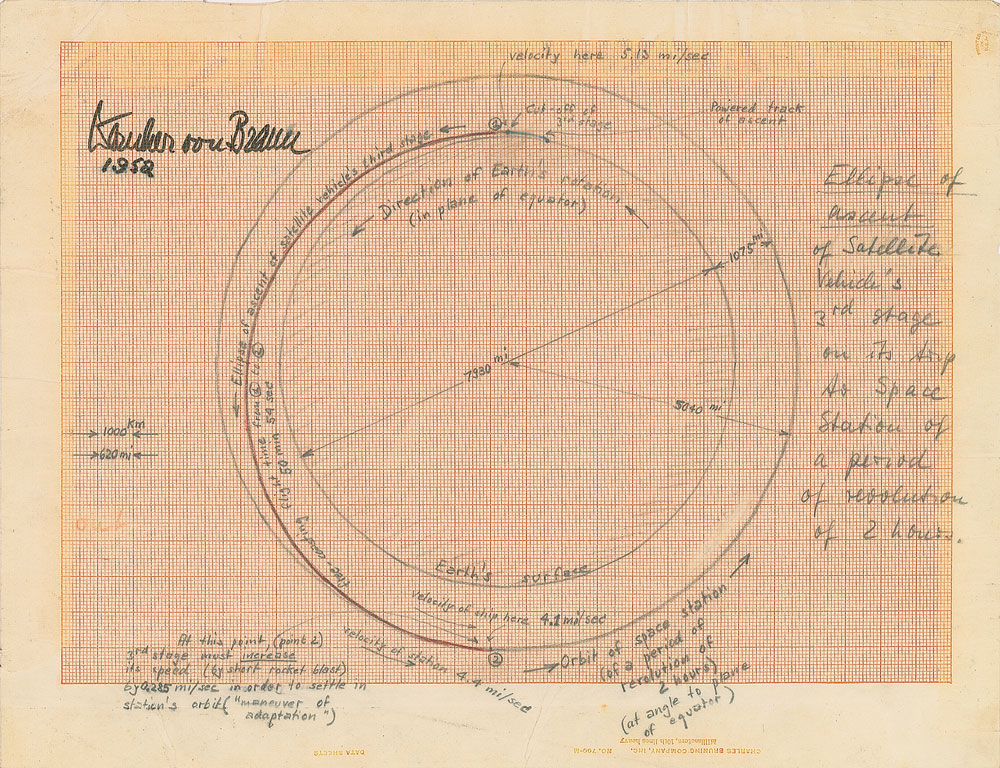 velocity here 5.13 mi/sec
Wernher von Braun
1952
Cut-off of
3rd stage
Powered track
of ascent
1
Ellipse of ascent of satellite vehicle's third stage
Direction of Earth's rotation
(in plane of equator)
Ellipse of
ascent
of Satellite
Vehicle's
3rd stage
on its trip
to Space
Station of
a period
of revolution
of 2 hours.
1075 mi
7930 mi
5040 mi
1000 km
620 mi
time-coasting flight time from 1 to 2
50 min 54 sec
Earth's surface
velocity of ship here 4.1 mi/sec
velocity of station 4.4 mi/sec
2
At this point, (point 2)
3rd stage must increase
its speed (by short rocket blast)
by 0.285 mi/sec in order to settle in
station's orbit ("maneuver of
adaptation")
Orbit of space station
(of a period of
revolution of
2 hours)
(at angle to plane
of equator)
DATA SHEETS
CHARLES BRUNING COMPANY, INC. NO. 700-M
Millimeters, 10th lines heavy